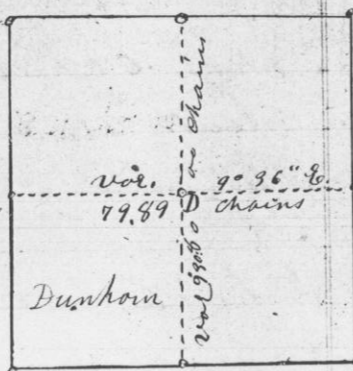 var. 9° 36" E.
79.89 D chains
var 9° 30' 80.00 chains
Dunhom